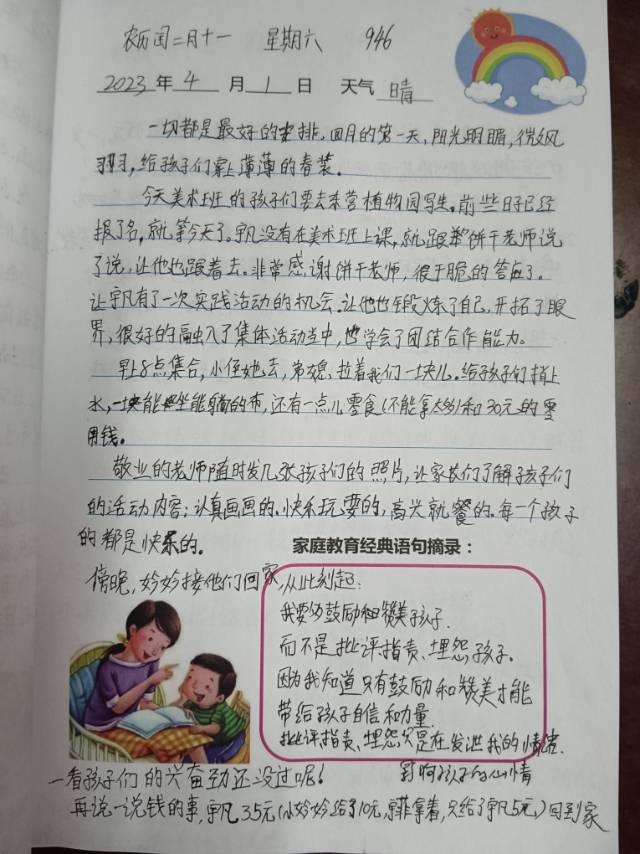 农历闰二月十一 星期六 946
2023年4月1日 天气 晴
一切都是最好的安排,四月的第一天,阳光明媚,微风
习习,给孩子们穿上薄薄的春装。
今天美术班的孩子们要去植物园写生。前些日子已经
报了名,就等今天了。宇凡没有在美术班上课,就跟饼干老师说
了说,让他也跟着去。非常感谢饼干老师,很干脆的答应了。
让宇凡有了一次实践活动的机会。让他也锻炼了自己,开拓了眼
界,很好的融入了集体活动当中,也学会了团结合作能力。
早上8点集合,小侄她去,弟媳拉着我们一块儿。给孩子们捎上
水,一块能坐能躺的布,还有一点儿零食(不能拿太多)和30元的零
用钱。
敬业的老师随时发几张孩子们的照片,让家长们了解孩子们
的活动内容;认真画画的。快乐玩耍的,高兴就餐的。每一个孩子
的都是快乐的。
家庭教育经典语句摘录:
傍晚,妗妗接他们回家,
从此刻起:
我要多鼓励和赞美孩子.
而不是批评指责、埋怨孩子。
因为我知道只有鼓励和赞美才能
带给孩子自信和力量.
批评指责、埋怨只是在发泄我的情绪.
一看孩子们的兴奋劲还没过呢!
影响孩子的心情
再说一说钱的事,宇凡35元(小妗妗给了10元,拿着,只给了宇凡5元)回到家